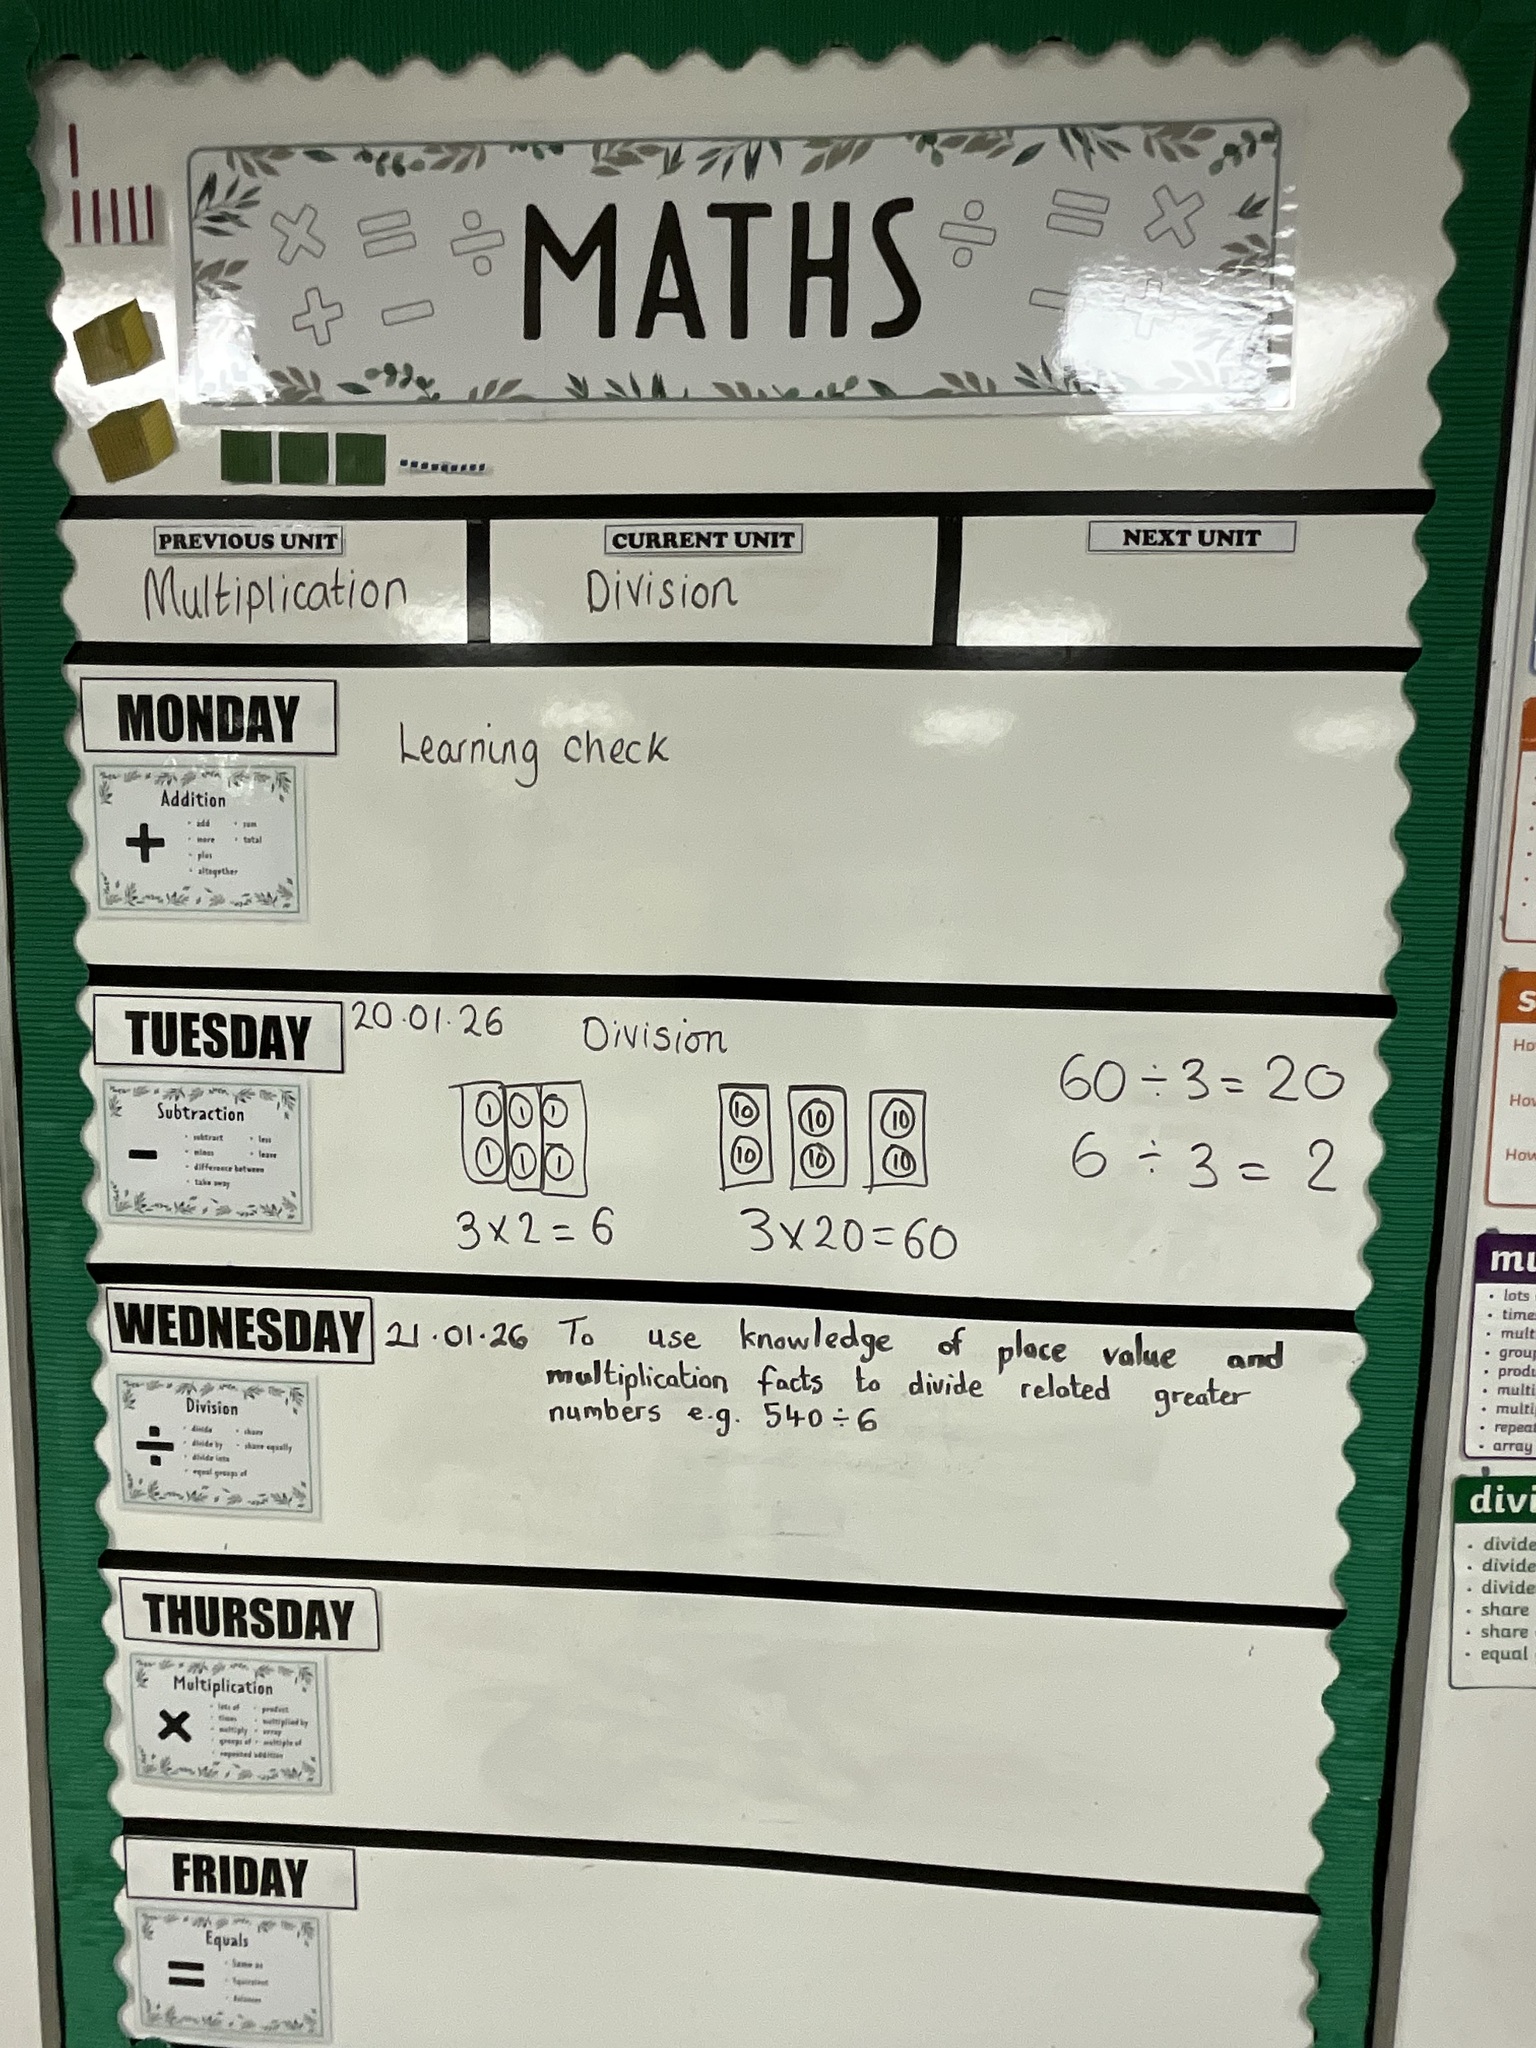 MATHS
PREVIOUS UNIT
Multiplication
CURRENT UNIT
Division
NEXT UNIT
MONDAY
Learning check
Addition
+
• add
• more
• plus
• altogether
• sum
• total
TUESDAY
20.01.26 Division
1 1 1
1 1 1
3 x 2 = 6
10 10 10
10 10 10
3 x 20 = 60
60 ÷ 3 = 20
6 ÷ 3 = 2
Subtraction
−
• subtract
• minus
• difference between
• take away
• less
• leave
WEDNESDAY
21.01.26 To use knowledge of place value and
multiplication facts to divide related greater
numbers e.g. 540 ÷ 6
Division
÷
• divide
• divide by
• divide into
• equal groups of
• share
• share equally
THURSDAY
Multiplication
×
• lots of
• times
• multiply
• groups of
• repeated addition
• product
• multiplied by
• array
• multiple of
FRIDAY
Equals
=
• Same as
• Equivalent
• Balances
How
How
mu
• lots
• time
• mult
• group
• produ
• multi
• multip
• repeat
• array
divi
• divide
• divide
• divide
• share
• share
• equal